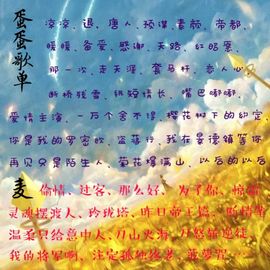 蛋蛋歌单
凉凉、退、唐人、预谋、素颜、帝都、
暖暖、备爱、悲谢、天路、红昭愿、
那一次、走天涯、套马杆、恋人心
断桥残雪、纸短情长、嘴巴嘟嘟、
爱情主演、一万个舍不得、樱花树下的约定、
你是我的罗密欧、盗墓行、我在景德镇等你
再见只是陌生人、菊花爆满山、以后的以后
麦
偷情、过客、那么好、为了你、惊
灵魂摆渡人、玲珑塔、昨日帝王篇、
温柔只给意中人、刀山火海、万怒
我的将军啊、注定孤独终老、菠萝